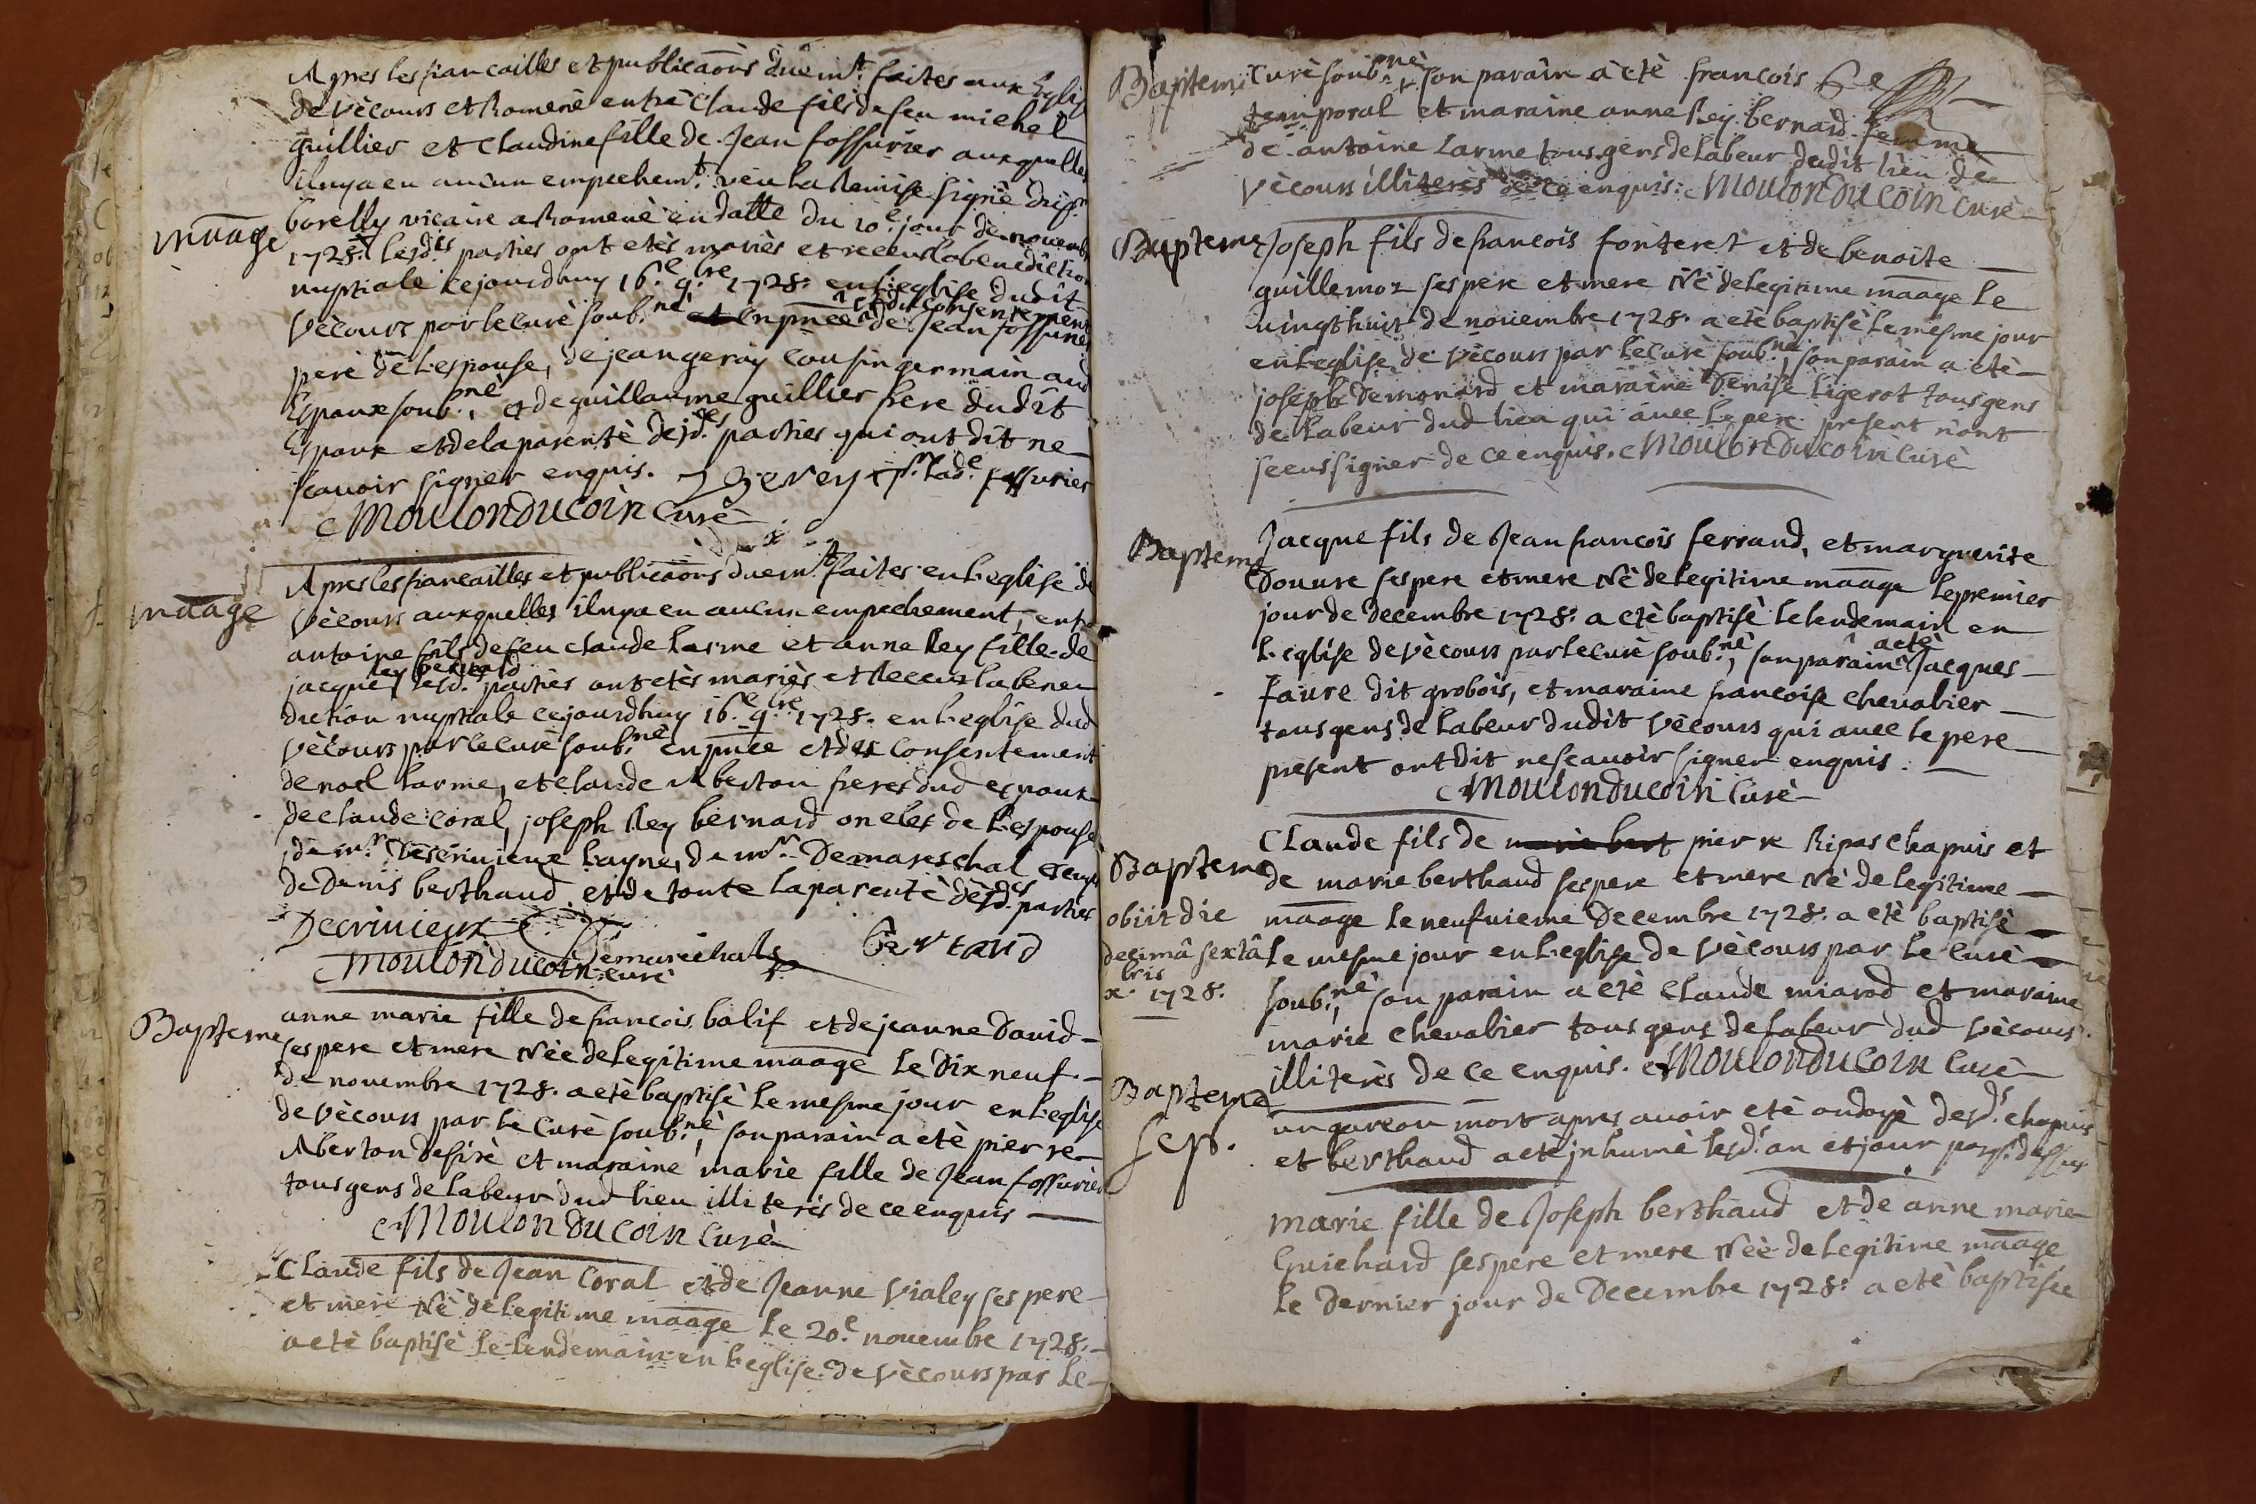 Apres les fiancailles et publicaõns düem.t faites aux Eglis
de vècours et Romenè entre Claude fils de feu michel
guillier et Claudine fille de Jean fossurier auxquelles
il ny a eu aucun empechem.t veu la Remise signè
borelly vicaire a Romenè en datte du 10.e jour de novemb
Mãage
1728. lesd.es parties ont etès mariès et receus la benediction
nuptiale cejourdhuy 16.e 9.bre 1728. en l'eglise dudit
Vècours par le curè soub.nè en pñce et du consentement de Jean fossurier
pere de l'espouse, de jean geray cousin germain aud
Espoux soub.nè, et de guillaume guillier frere dudit
Espoux et de la parentè desd.es parties qui ont dit ne
scavoir signer enquis. fossurier
Moulonducoin Curè
Apres les fiancailles et publicaõns duem.t faites en l'eglise de
Mãage
Vècours auxquelles il ny a eu aucun empechement, entre
antoine fils de feu claude Larme et anne Rey fille de
jacque Rey bernard lesd. parties ont etès mariès et Receus la bene
diction nuptiale cejourdhuy 16.e 9.bre 1728. en l'eglise dud
Vècours par le curè soub.nè en pñce et du consentement
de noel Larme, et claude Aberton freres dud espoux
de claude Coral, joseph Rey bernard oncles de l'espouse
de m.r Descrivieux de m.r Demareschal
de Denis berthaud et de toute la parentè desd.es parties
Decrivieux
Demarechal bertaud
Moulonducoin curè
Bapteme
anne marie fille de francois balif et de jeanne David
ses pere et mere Nèe de legitime mãage le Dix neuf
de novembre 1728. a etè baptisè le mesme jour en l'eglise
de vècours par le Curè soub.nè, son parain a etè pierre
Aberton desirè et maraine marie fille de Jean fossurier
tous gens de labeur dud lieu illiterès de ce enquis
Moulonducoin Curè
Claude fils de Jean Coral et de Jeanne Vialey ses pere
et mere Nè de legitime mãage le 20.e novembre 1728.
a etè baptisè le lendemain en l'eglise de vècours par le
Bapteme
Curè soub.nè, son parain a etè francois
temporal et maraine anne Rey bernard femme
de antoine Larme tous gens de labeur dudit lieu de
Vècours illiterès de ce enquis. Moulonducoin Curè
Bapteme
Joseph fils de francois fonteret et de benoite
guillemoz ses pere et mere Nè de legitime mãage le
vingt huit de novembre 1728. a etè baptisè le mesme jour
en l'eglise de vècours par le curè soub.nè, son parain a etè
joseph Demonard et maraine Denise Ligerot tous gens
de labeur dud lieu qui avec le pere present n'ont
sceus signer de ce enquis. Moulonducoin Curè
Bapteme
Jacque fils de Jean francois ferrand, et marguerite
Douvre ses pere et mere Nè de legitime mãage le premier
jour de Decembre 1728. a etè baptisè le lendemain en
l'eglise de vècours par le curè soub.nè, son parain a etè Jacques
faure dit grobois, et maraine francoise Chevalier
tous gens de labeur dudit Vècours qui avec le pere
present ont dit ne scavoir signer enquis.
Moulonducoin Curè
Bapteme
Claude fils de marie bert pierre Ripas chapuis et
de marie berthaud ses pere et mere Nè de legitime
obiit die
decimâ sextâ
x.bris 1728.
mãage le neufvieme Decembre 1728. a etè baptisè
le mesme jour en l'eglise de vècours par le curè
soub.nè, son parain a etè Claude miarod et maraine
marie chevalier tous gens de labeur dud vècours
illiterès de ce enquis. Moulonducoin Curè
Bapteme
Sep.
un garcon mort apres avoir etè ondoyè desd.s chapuis
et berthaud a etè jnhumè lesd.s an et jour
marie fille de Joseph berthaud et de anne marie
Guichard ses pere et mere Nèe de legitime mãage
le Dernier jour de Decembre 1728. a etè baptisèe